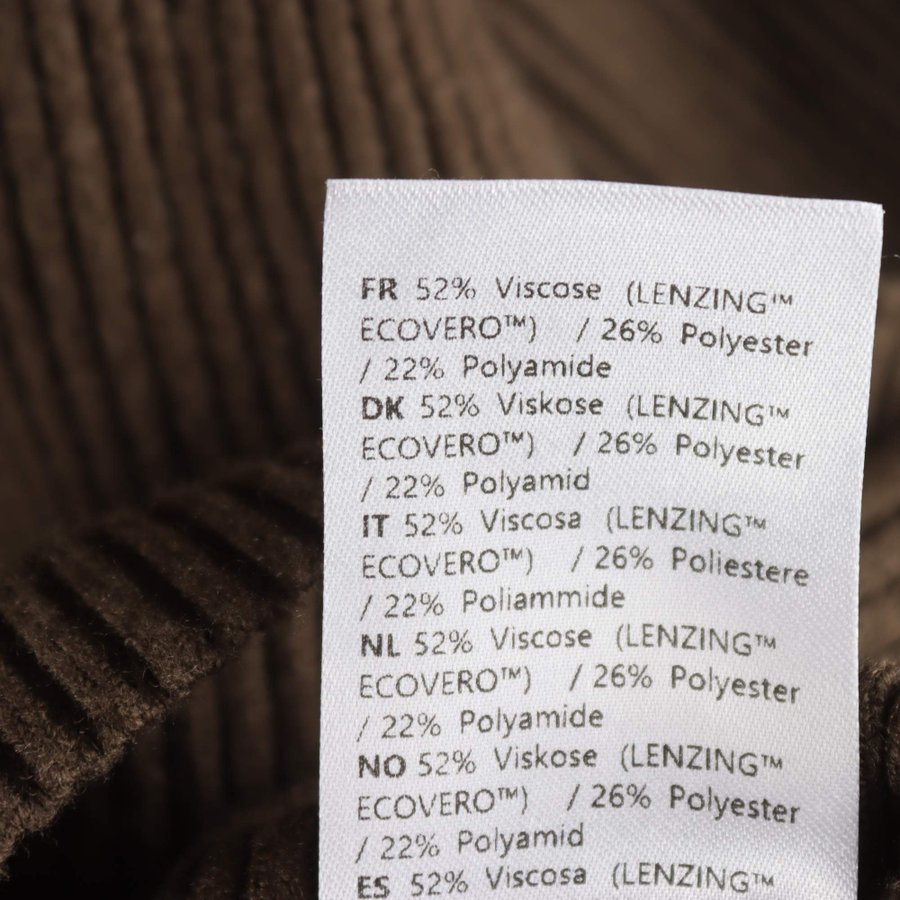 FR 52% Viscose (LENZING™
ECOVERO™) / 26% Polyester
/ 22% Polyamide
DK 52% Viskose (LENZING™
ECOVERO™) / 26% Polyester
/ 22% Polyamid
IT 52% Viscosa (LENZING™
ECOVERO™) / 26% Poliestere
/ 22% Poliammide
NL 52% Viscose (LENZING™
ECOVERO™) / 26% Polyester
/ 22% Polyamide
NO 52% Viskose (LENZING™
ECOVERO™) / 26% Polyester
/ 22% Polyamid
ES 52% Viscosa (LENZING™